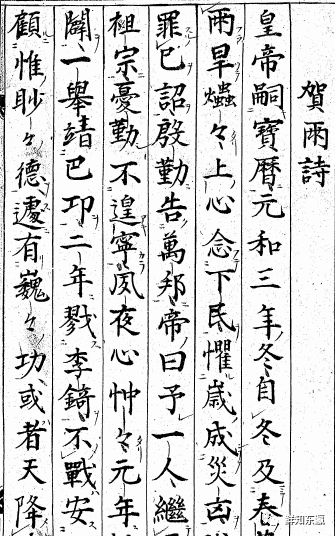 賀雨詩
皇帝嗣寶暦元和三年冬自冬及春
雨旱爞々上心念下民懼歳成災凶
罪已詔殷勤告萬邦帝曰予一人繼
祖宗憂勤不遑寧夙夜心忡々元年
闢一舉靖巴卭二年戮李錡不戰安
顧惟眇々德遽有巍々功或者天降